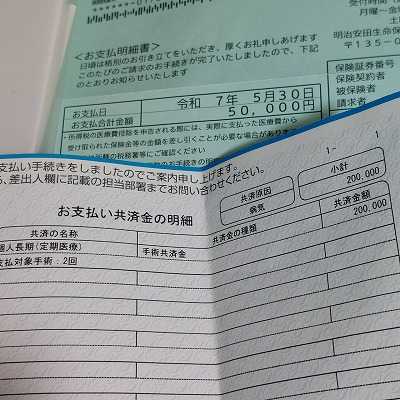 受付時間
月曜～金
明治安田生命
〒135-0
＜お支払明細書＞
日頃は格別のお引き立てをいただき、厚くお礼申しあげます
このたびのご請求のお手続きが完了いたしましたので、下記
のとおりお知らせいたします
保険証券番号
保険契約者
被保険者
請求者
お支払日 令和 7年 5月30日
お支払合計金額 50,000円
・所得税の医療費控除を申告される際には、実際に支払った医療費から
受け取られた保険金等の金額を差し引くことが必要な場合がありま
の税務署等にご確認ください
支払い手続きをしましたのでご案内申し上げます。
差出人欄に記載の担当部署までお問い合わせください。
1- 1
共済原因
病気
小計
200,000
お支払い共済金の明細
共済の名称
共済金の種類
共済金額
個人長期(定期医療)
手術共済金
200,000
支払対象手術:2回